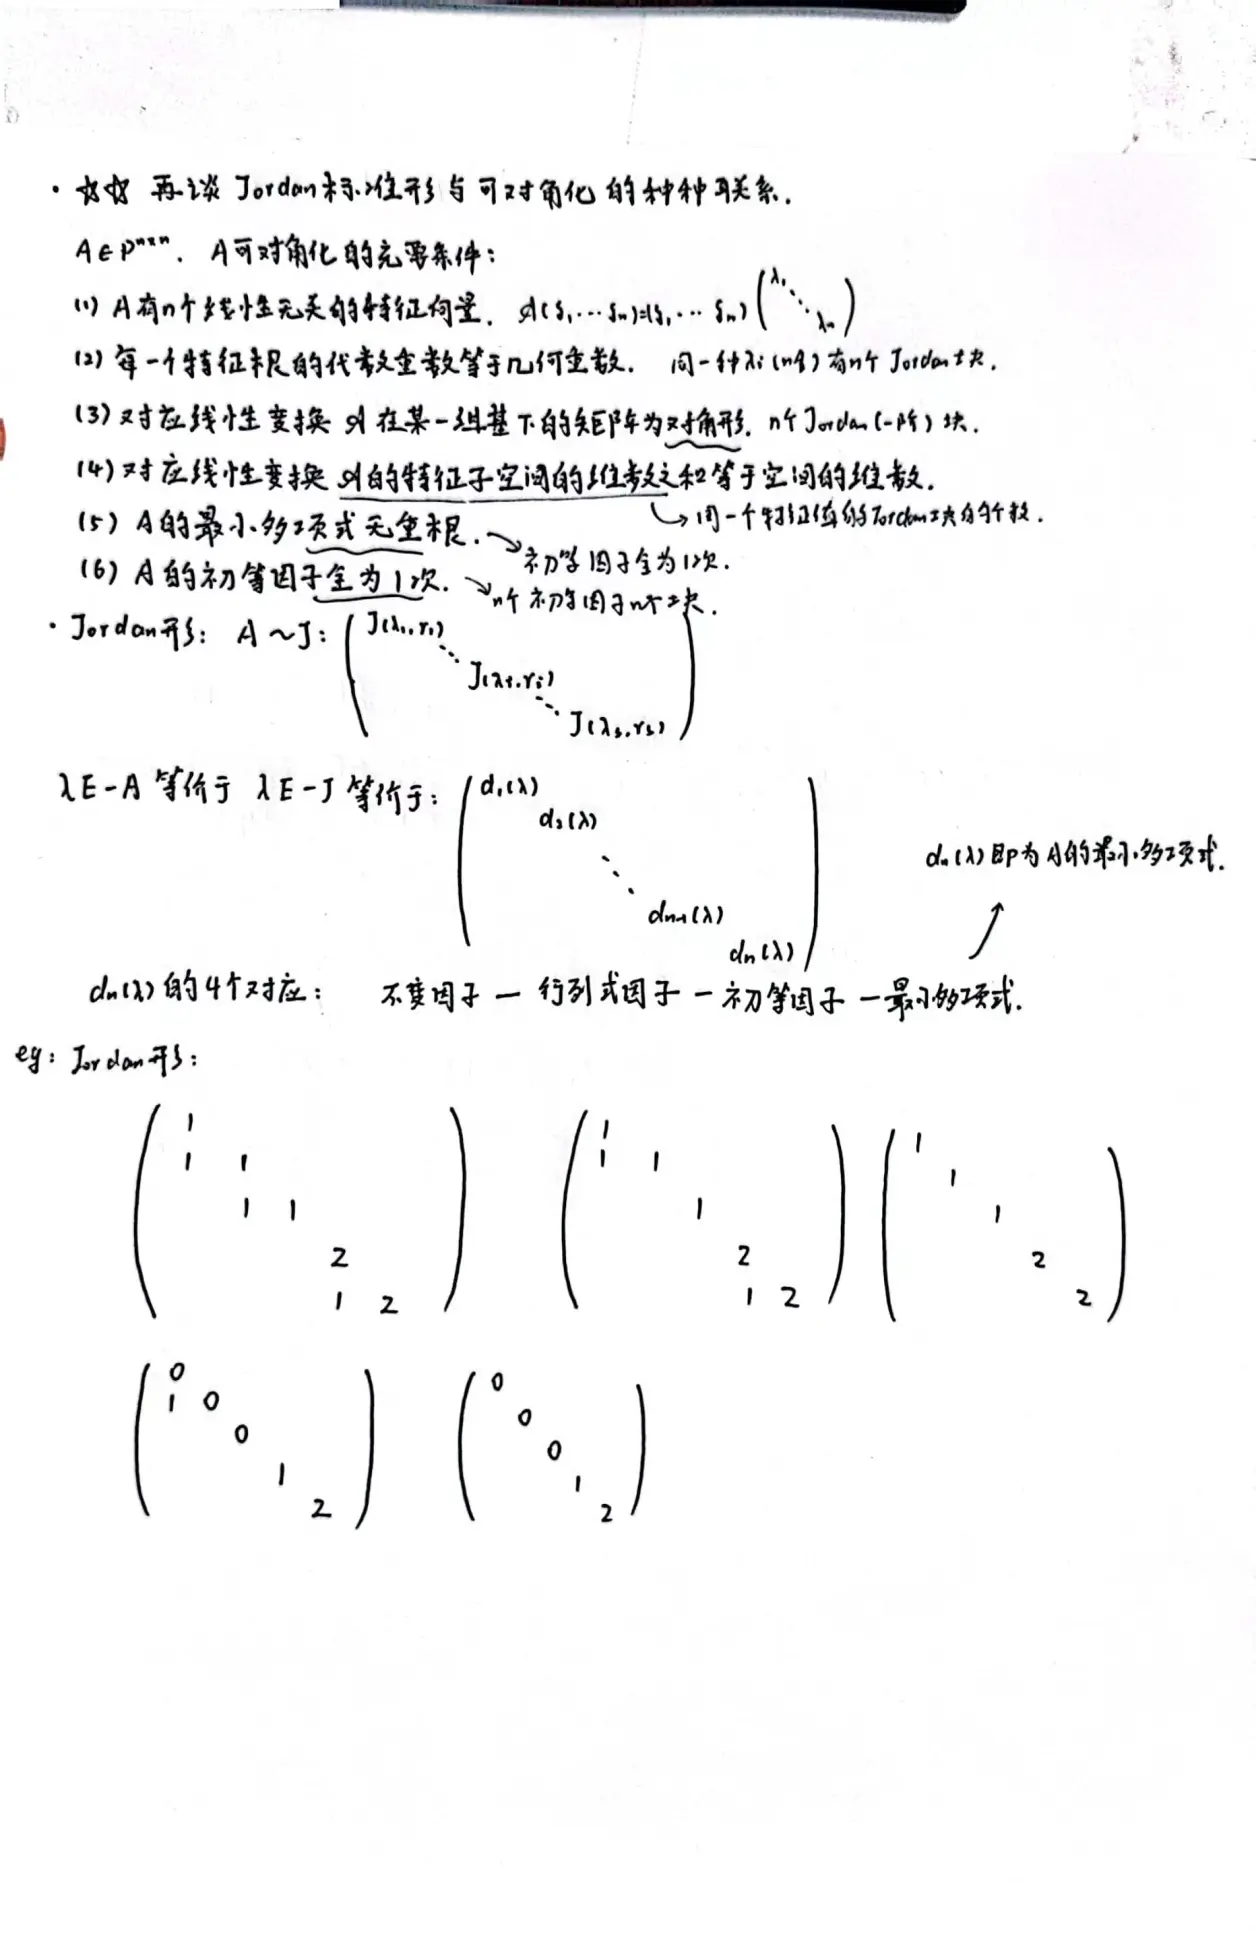 · ☆☆ 再谈 Jordan标准形与可对角化的种种联系.
A∈Pⁿˣⁿ. A可对角化的充要条件:
(1) A有n个线性无关的特征向量. 𝒜(ξ₁…ξₙ)=(ξ₁…ξₙ)(λ₁ ⋱ λₙ)
(2) 每一个特征根的代数重数等于几何重数. 同一种λi(n重)有n个 Jordan块.
(3) 对应线性变换 𝒜 在某一组基下的矩阵为对角形. n个Jordan(一阶)块.
(4) 对应线性变换 𝒜的特征子空间的维数之和等于空间的维数.
↳同一个特征值的Jordan块的个数.
(5) A的最小多项式无重根. ↘初等因子全为1次.
(6) A的初等因子全为1次. ↘n个初等因子n个块.
· Jordan形: A~J: ( J(λ₁,r₁)
⋱ J(λi,ri)
⋱ J(λs,rs) )
λE-A 等价于 λE-J 等价于: ( d₁(λ)
d₂(λ)
⋱
dₙ₋₁(λ)
dₙ(λ) )
dₙ(λ)即为A的最小多项式.
↗
dₙ(λ)的4个对应: 不变因子 — 行列式因子 — 初等因子 — 最小多项式.
eg: Jordan形:
1 1 1
1 1 1 1 1
1 1 1 1
2 2 2
1 2 1 2 2
0 0
1 0 0
0 0
1 1
2 2